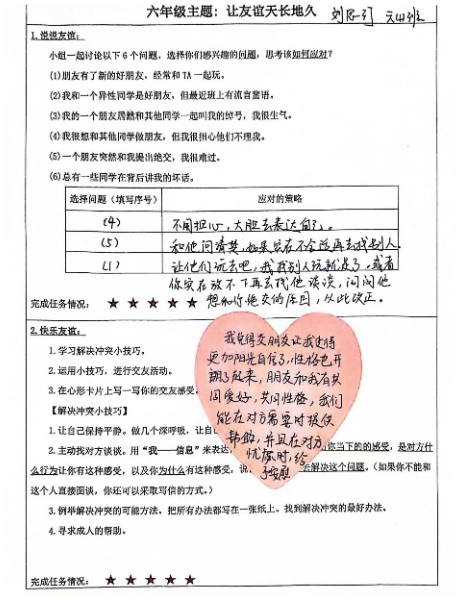 六年级主题：让友谊天长地久
1.说说友谊：
小组一起讨论以下6个问题，选择你们感兴趣的问题，思考该如何应对？
(1)朋友有了新的好朋友，经常和TA一起玩。
(2)我和一个异性同学是好朋友，但最近班上有流言蜚语。
(3)我的一个朋友居然和其他同学一起叫我的绰号，我很生气。
(4)我很想和其他同学做朋友，但我很担心他们不理我。
(5)一个朋友突然和我提出绝交，我很难过。
(6)总有一些同学在背后讲我的坏话。
选择问题（填写序号） 应对的策略
(4) 不用担心，大胆去表达自己。
(5) 和他问清楚，如果实在不合适再去找别人
(1) 让他们玩去吧，我找别人玩就是了。或者
你实在放不下再去找他谈谈，问问他
想和你绝交的原因，从此改正。
完成任务情况： ★ ★ ★ ★ ★
2.快乐友谊：
1.学习解决冲突小技巧。
2.运用小技巧，进行交友活动。
3.在心形卡片上写一写你的交友感受
【解决冲突小技巧】
1.让自己保持平静。做几个深呼吸，让自
2.主动找对方谈谈。用“我——信息”来表达，
你当下的的感受，是对方什
么行为让你有这种感受，以及你为什么有这种感受，说
去解决这个问题。（如果你不能和
这个人直接面谈，你还可以采取写信的方式。）
3.例举解决冲突的可能方法。把所有办法都写在一张纸上。找到解决冲突的最好办法。
4.寻求成人的帮助。
我觉得交朋友让我变得
更加阳光自信了，性格也开
朗了起来，朋友和我有共
同爱好，共同性格，我们
能在对方需要时提供
帮助，并且在对方
忧愁时，给
予安慰
完成任务情况： ★ ★ ★ ★ ★